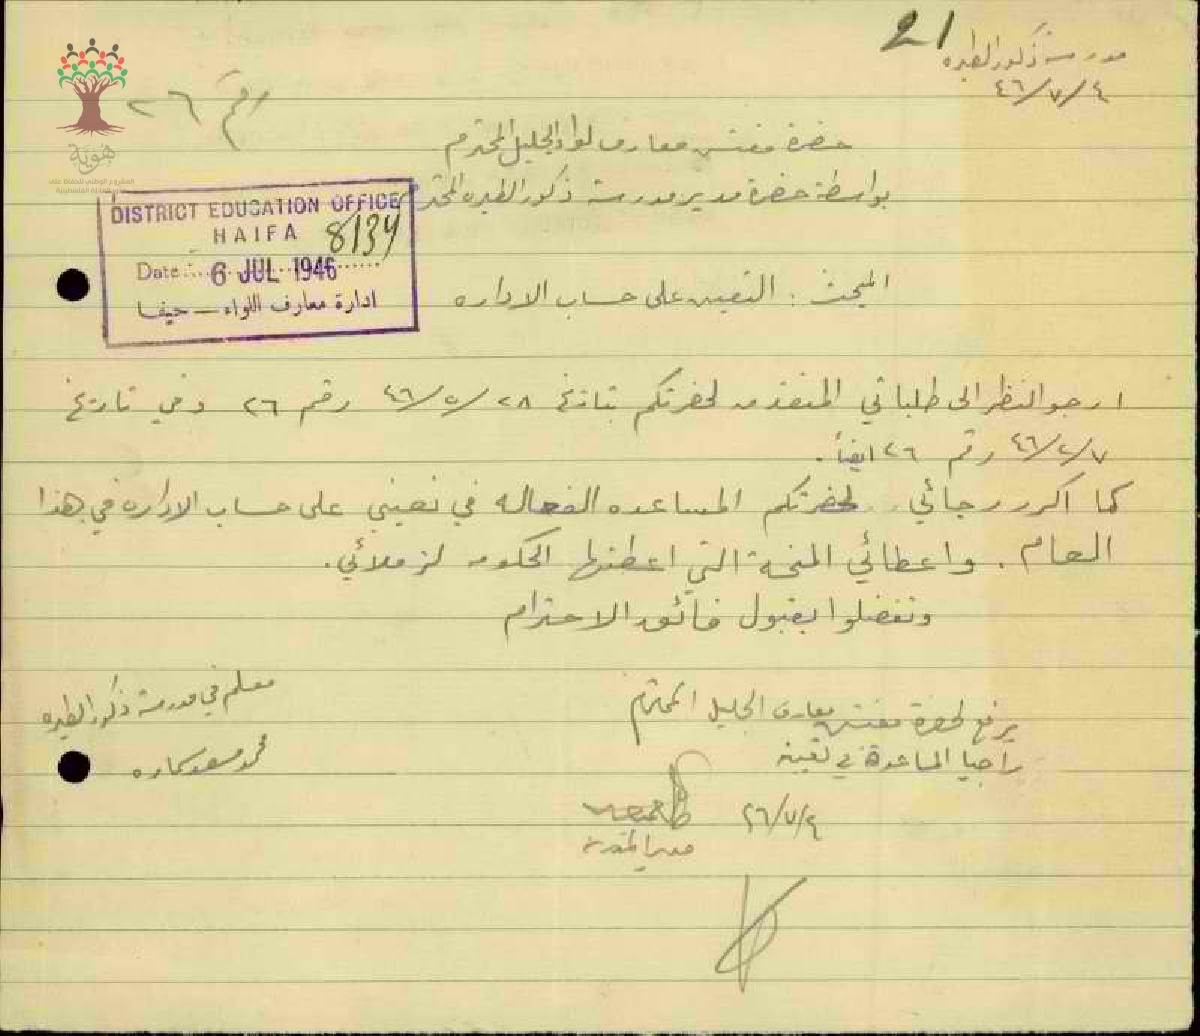 21
مدرسة ذكور الطيره
٤٦/٧/٤
رقم ٢٦
هوية
حضرة مفتش معارف لواء الجليل المحترم
بواسطة حضرة مدير مدرسة ذكور الطيره المحترم
DISTRICT EDUCATION OFFICE
HAIFA 8134
Date 6 JUL 1946
ادارة معارف اللواء — حيفا
المبحث : التعيين على حساب الاداره
ارجو النظر الى طلباتي المتقدمه لحضرتكم بتاريخ ٤٦/٥/٢٨ رقم ٢٦ وفي تاريخ
٤٦/٢/٧ رقم ٢٦ ايضاً.
كما اكرر رجائي لحضرتكم المساعده الفعاله في تعييني على حساب الاداره في هذا
العام . واعطائي المنحة التي اعطتها الحكومه لزملائي.
وتفضلوا بقبول فائق الاحترام
معلم في مدرسة ذكور الطيره
محمد مسعد
يرفع لحضرة مفتش معارف الجليل المحترم
راجيا المساعدة في تعيينه
٤٦/٧/٤
مدير المدرسة